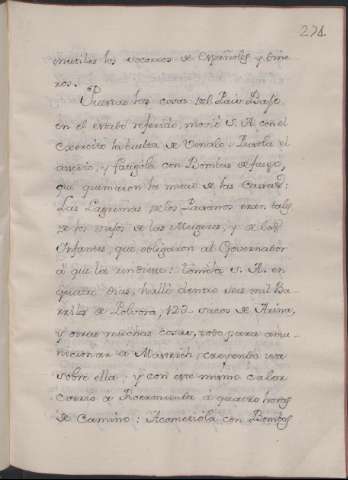 271.
inutiles los socorros de españoles y dine
ros.
Puestas las cosas del Pais Bajo
en el estado referido, movió S. A. con el
exercito la buelta de Venalo: Pusola el
asedio, y fatigola con Bombas de fuego,
que quemaron la mitad de las Casas:
Las Lagrimas de los Paisanos eran tales
de los de las Mugeres, y de los
Infantes, que obligaron al Governador
á que la rindiese: tomóla S. A. en
quatro dias, halló dentro seis mil Ba
rriles de Polvora, 123. sacos de Arina,
y otras muchas cosas, todo para amu
nicionar á Mastrich, creyendo iva
sobre ella; y con este mismo calor
corrió á Roeremunda á quatro horas
de Camino: Acometióla con Bombas